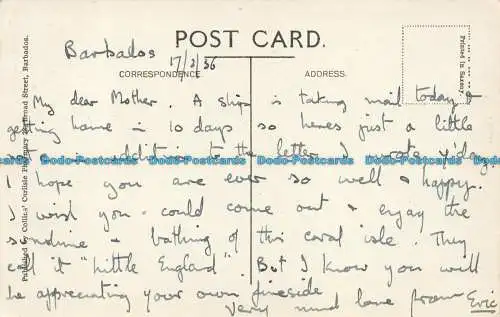 Barbados
17/2/36
POST CARD.
CORRESPONDENCE
ADDRESS.
Printed in Saxony.
Published by Collins' Carlisle Pharmacy, 28 Broad Street, Barbados.
My dear Mother. A ship is taking mail today &
getting home in 10 days so heres just a little
in addition to the letter I wrote y'day.
Dodo-Postcards Dodo-Postcards Dodo-Postcards Dodo-Postcards Dodo-Postcards
I hope you are ever so well & happy.
I wish you could come out & enjoy the
sunshine & bathing of this coral isle. They
call it "Little England". But I know you will
be appreciating your own fireside
Very much love from Eric